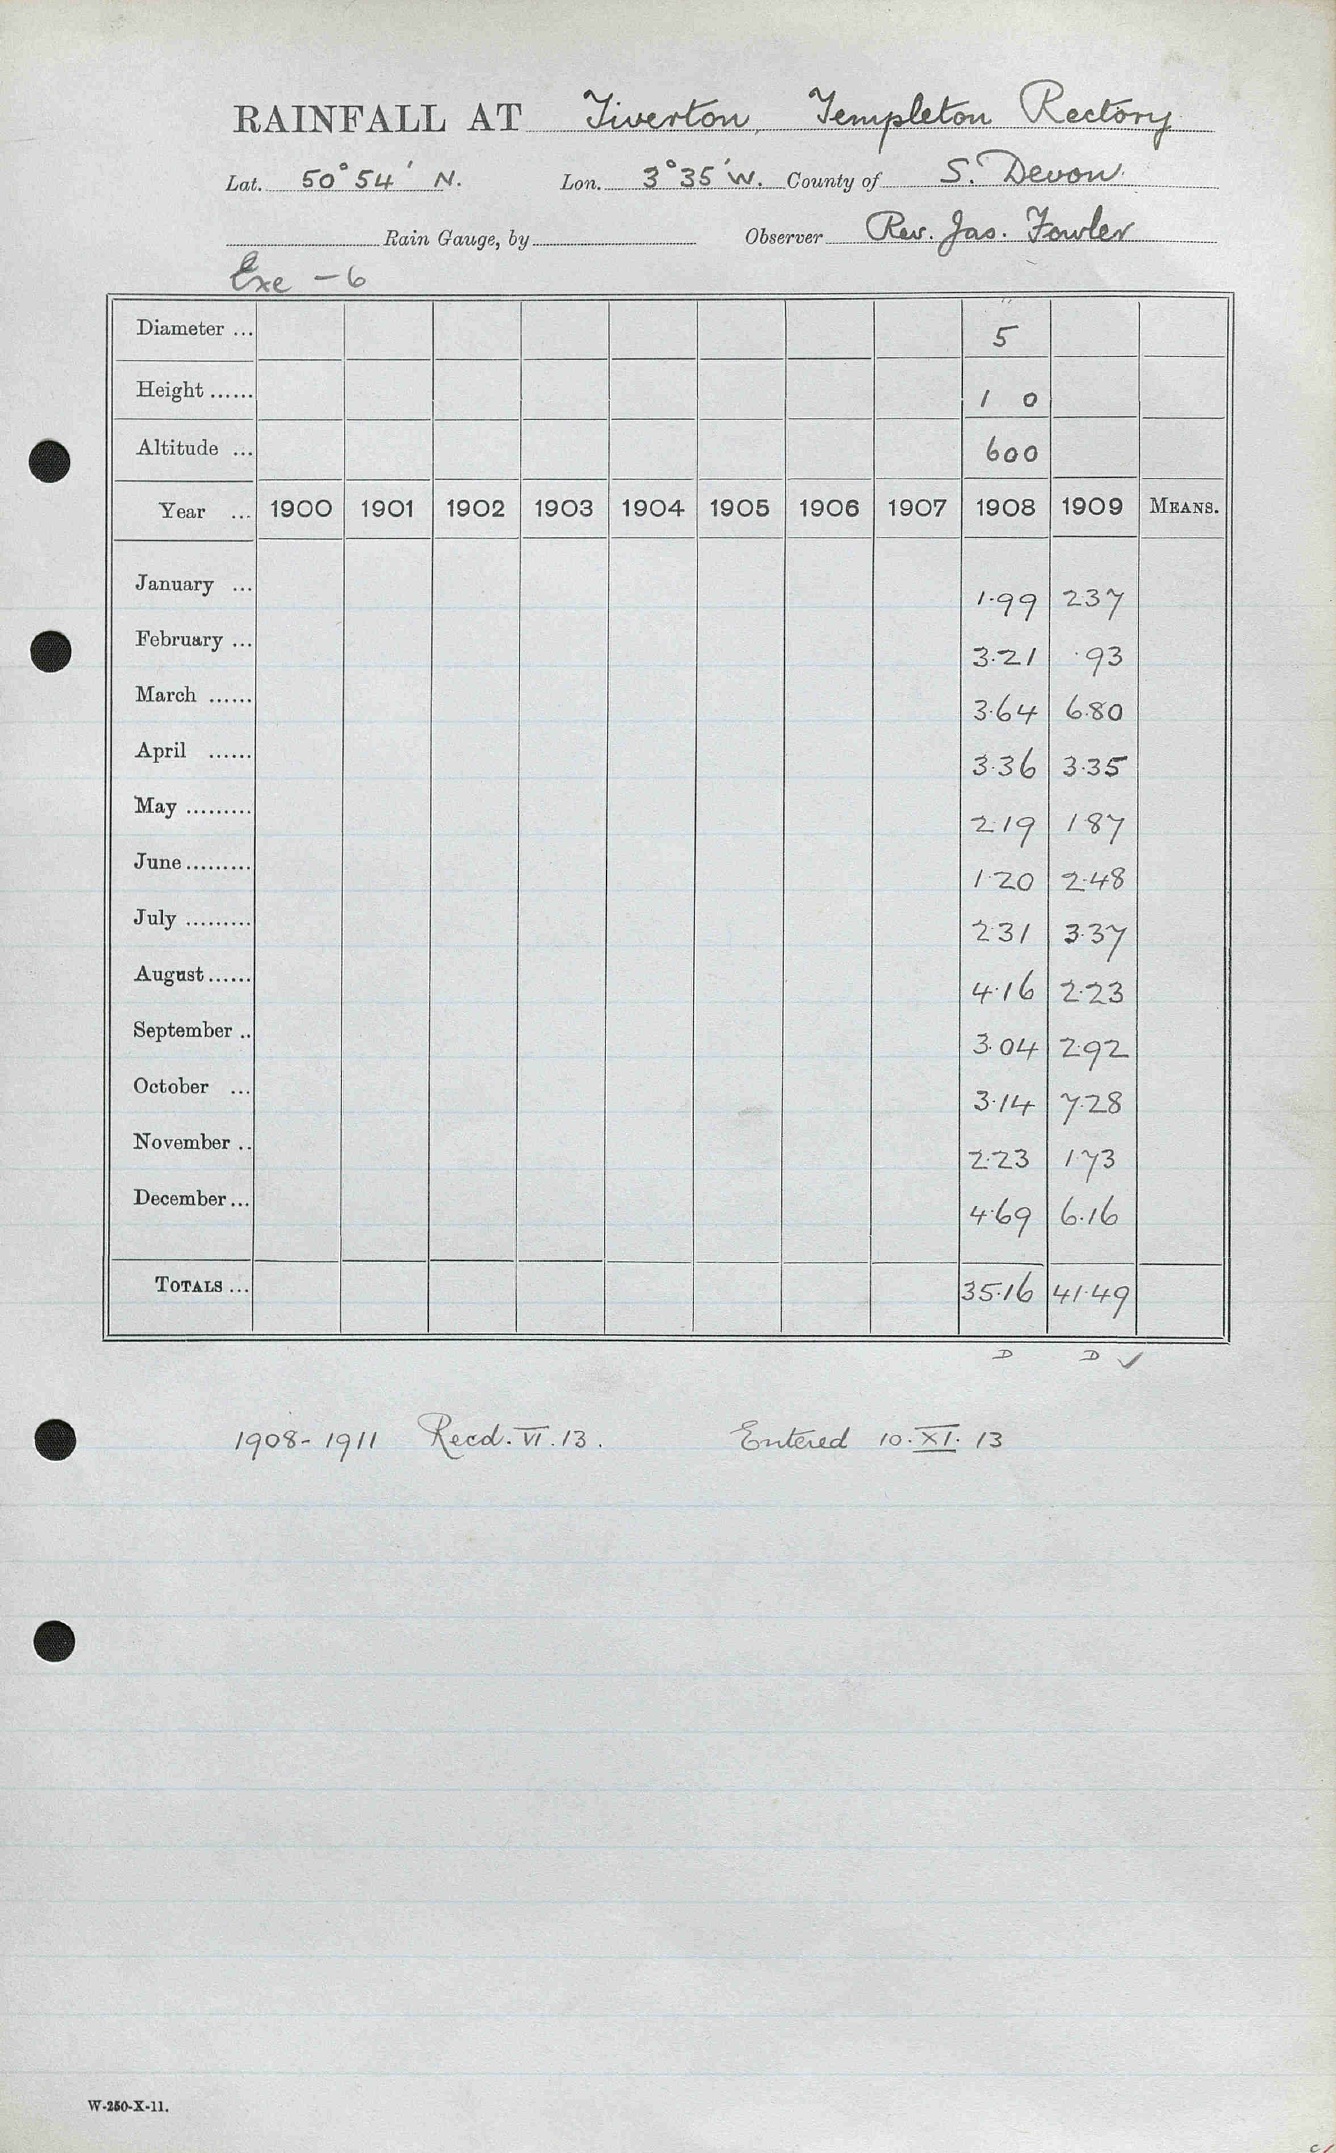 RAINFALL AT Tiverton, Templeton Rectory
Lat. 50° 54' N. Lon. 3° 35' W. County of S. Devon.
Rain Gauge, by Observer Rev. Jas. Fowler
Exe - 6
Diameter ... 5"
Height ...... 1 0
Altitude ... 600
Year ... 1900 1901 1902 1903 1904 1905 1906 1907 1908 1909 MEANS.
January ... 1.99 2.37
February ... 3.21 .93
March ...... 3.64 6.80
April ...... 3.36 3.35
May ......... 2.19 1.87
June ......... 1.20 2.48
July ......... 2.31 3.37
August ...... 4.16 2.23
September .. 3.04 2.92
October ... 3.14 7.28
November .. 2.23 1.73
December ... 4.69 6.16
TOTALS ... 35.16 41.49
D D ✓
1908-1911 Recd. VI. 13. Entered 10. XI. 13
W-250-X-11.